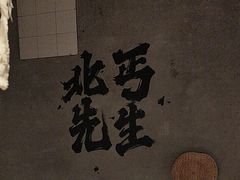 北丐
先生